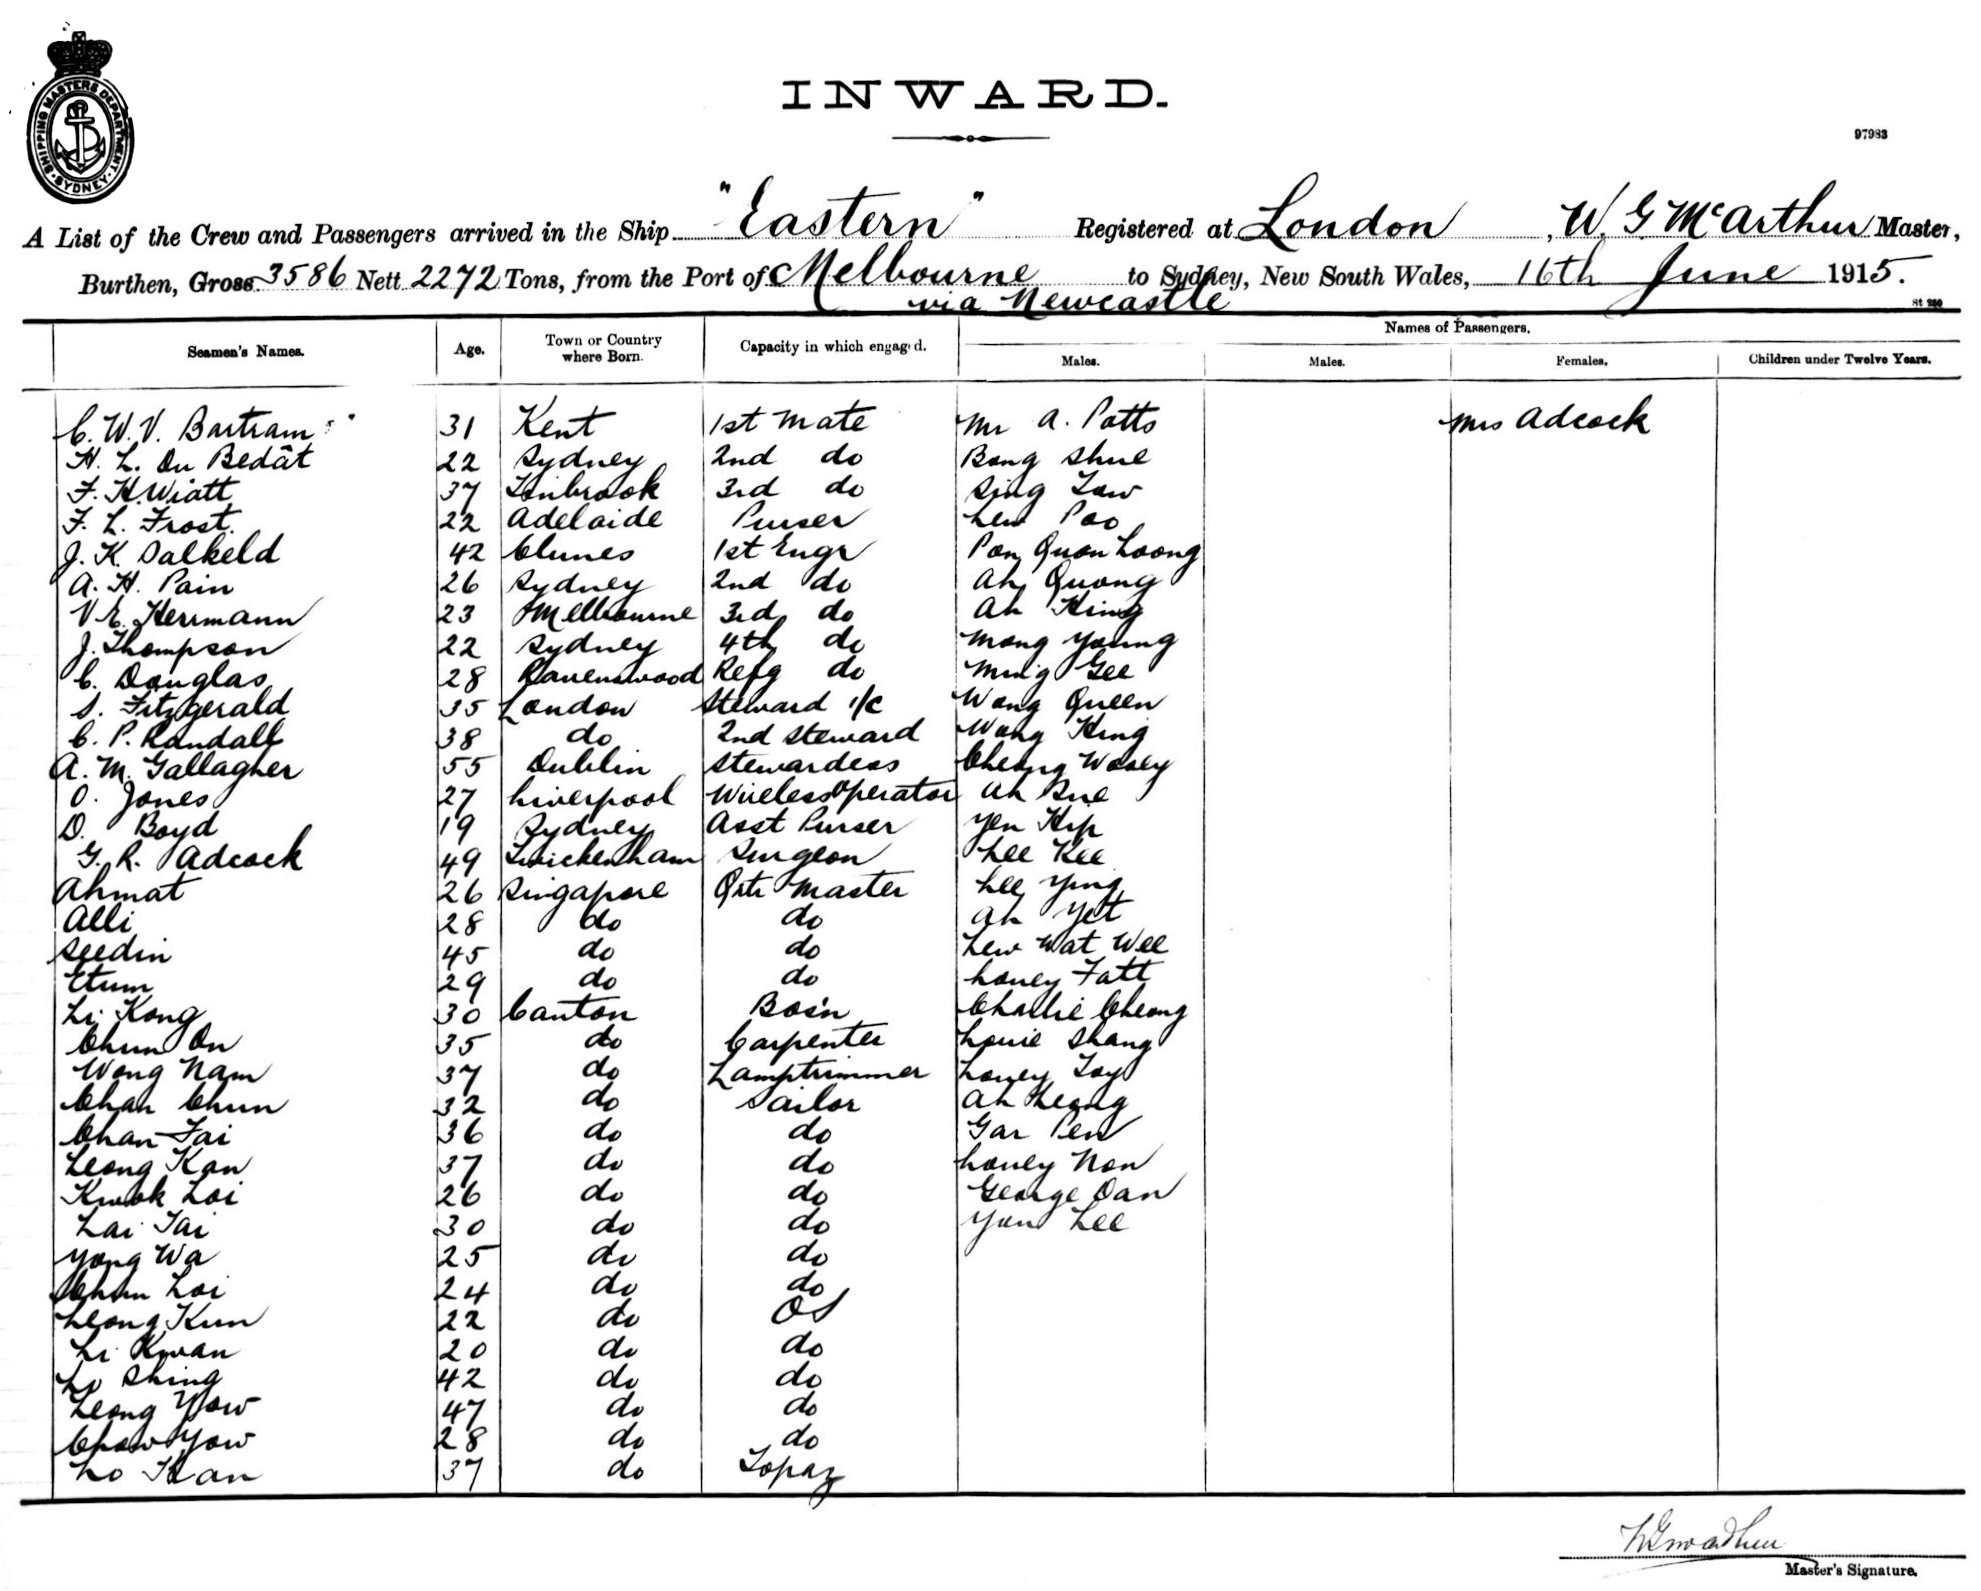 SHIPPING MASTERS DEPARTMENT
SYDNEY
INWARD.
97983
A List of the Crew and Passengers arrived in the Ship "Eastern" Registered at London, W. G McArthur Master,
Burthen, Gross 3586 Nett 2272 Tons, from the Port of Melbourne to Sydney, New South Wales, 16th June 1915.
via Newcastle
St 250
Seamen's Names. Age. Town or Country where Born. Capacity in which engaged. Names of Passengers.
Males. Males. Females. Children under Twelve Years.
C. W. V. Bartram 31 Kent 1st Mate Mr A. Potts Mrs Adcock
H. L. Du Bedât 22 Sydney 2nd do Bong Shue
F. H. Wiatt 37 Linbrook 3rd do Sing Low
F. L. Frost. 22 Adelaide Purser Lew Poo
J. K. Salkeld 42 Clunes 1st Engr Pon Quon Loong
A. H. Pain 26 Sydney 2nd do Ah Quong
V E. Herrmann 23 Melbourne 3rd do Ah King
J. Thompson 22 Sydney 4th do Mong Young
C. Douglas 28 Ravenswood Refg do Ming Gee
S. Fitzgerald 35 London Steward i/c Wong Queen
C. P. Randall 38 do 2nd Steward Wong King
A. M. Gallagher 55 Dublin Stewardess Cheong Wooey
O. Jones 27 Liverpool Wireless Operator Ah Sue
D. Boyd 19 Sydney Asst Purser Yen Kip
G. R. Adcock 49 Twickenham Surgeon Lee Kee
Ahmat 26 Singapore Qtr Master Lee Ying
Alli 28 do do Ah Yet
Seedin 45 do do Lew Wat Wee
Etum 29 do do Louey Fatt
Li Kong 30 Canton Bos'n Challie Cheong
Chun On 35 do Carpenter Louie Shang
Wong Nam 37 do Lamptrimmer Louey Toy
Chan Chun 32 do Sailor Ah Leong
Chan Fai 36 do do Gar Pen
Leong Kan 37 do do Louey Non
Kwok Loi 26 do do George Dan
Lai Tai 30 do do Yun Lee
Yong Wa 25 do do
Chun Loi 24 do do
Leong Kun 22 do OS
Li Kwan 20 do do
Lo Shing 42 do do
Leong Yow 47 do do
Chow Yow 28 do do
Lo Kan 37 do Topaz
W G McArthur
Master's Signature.